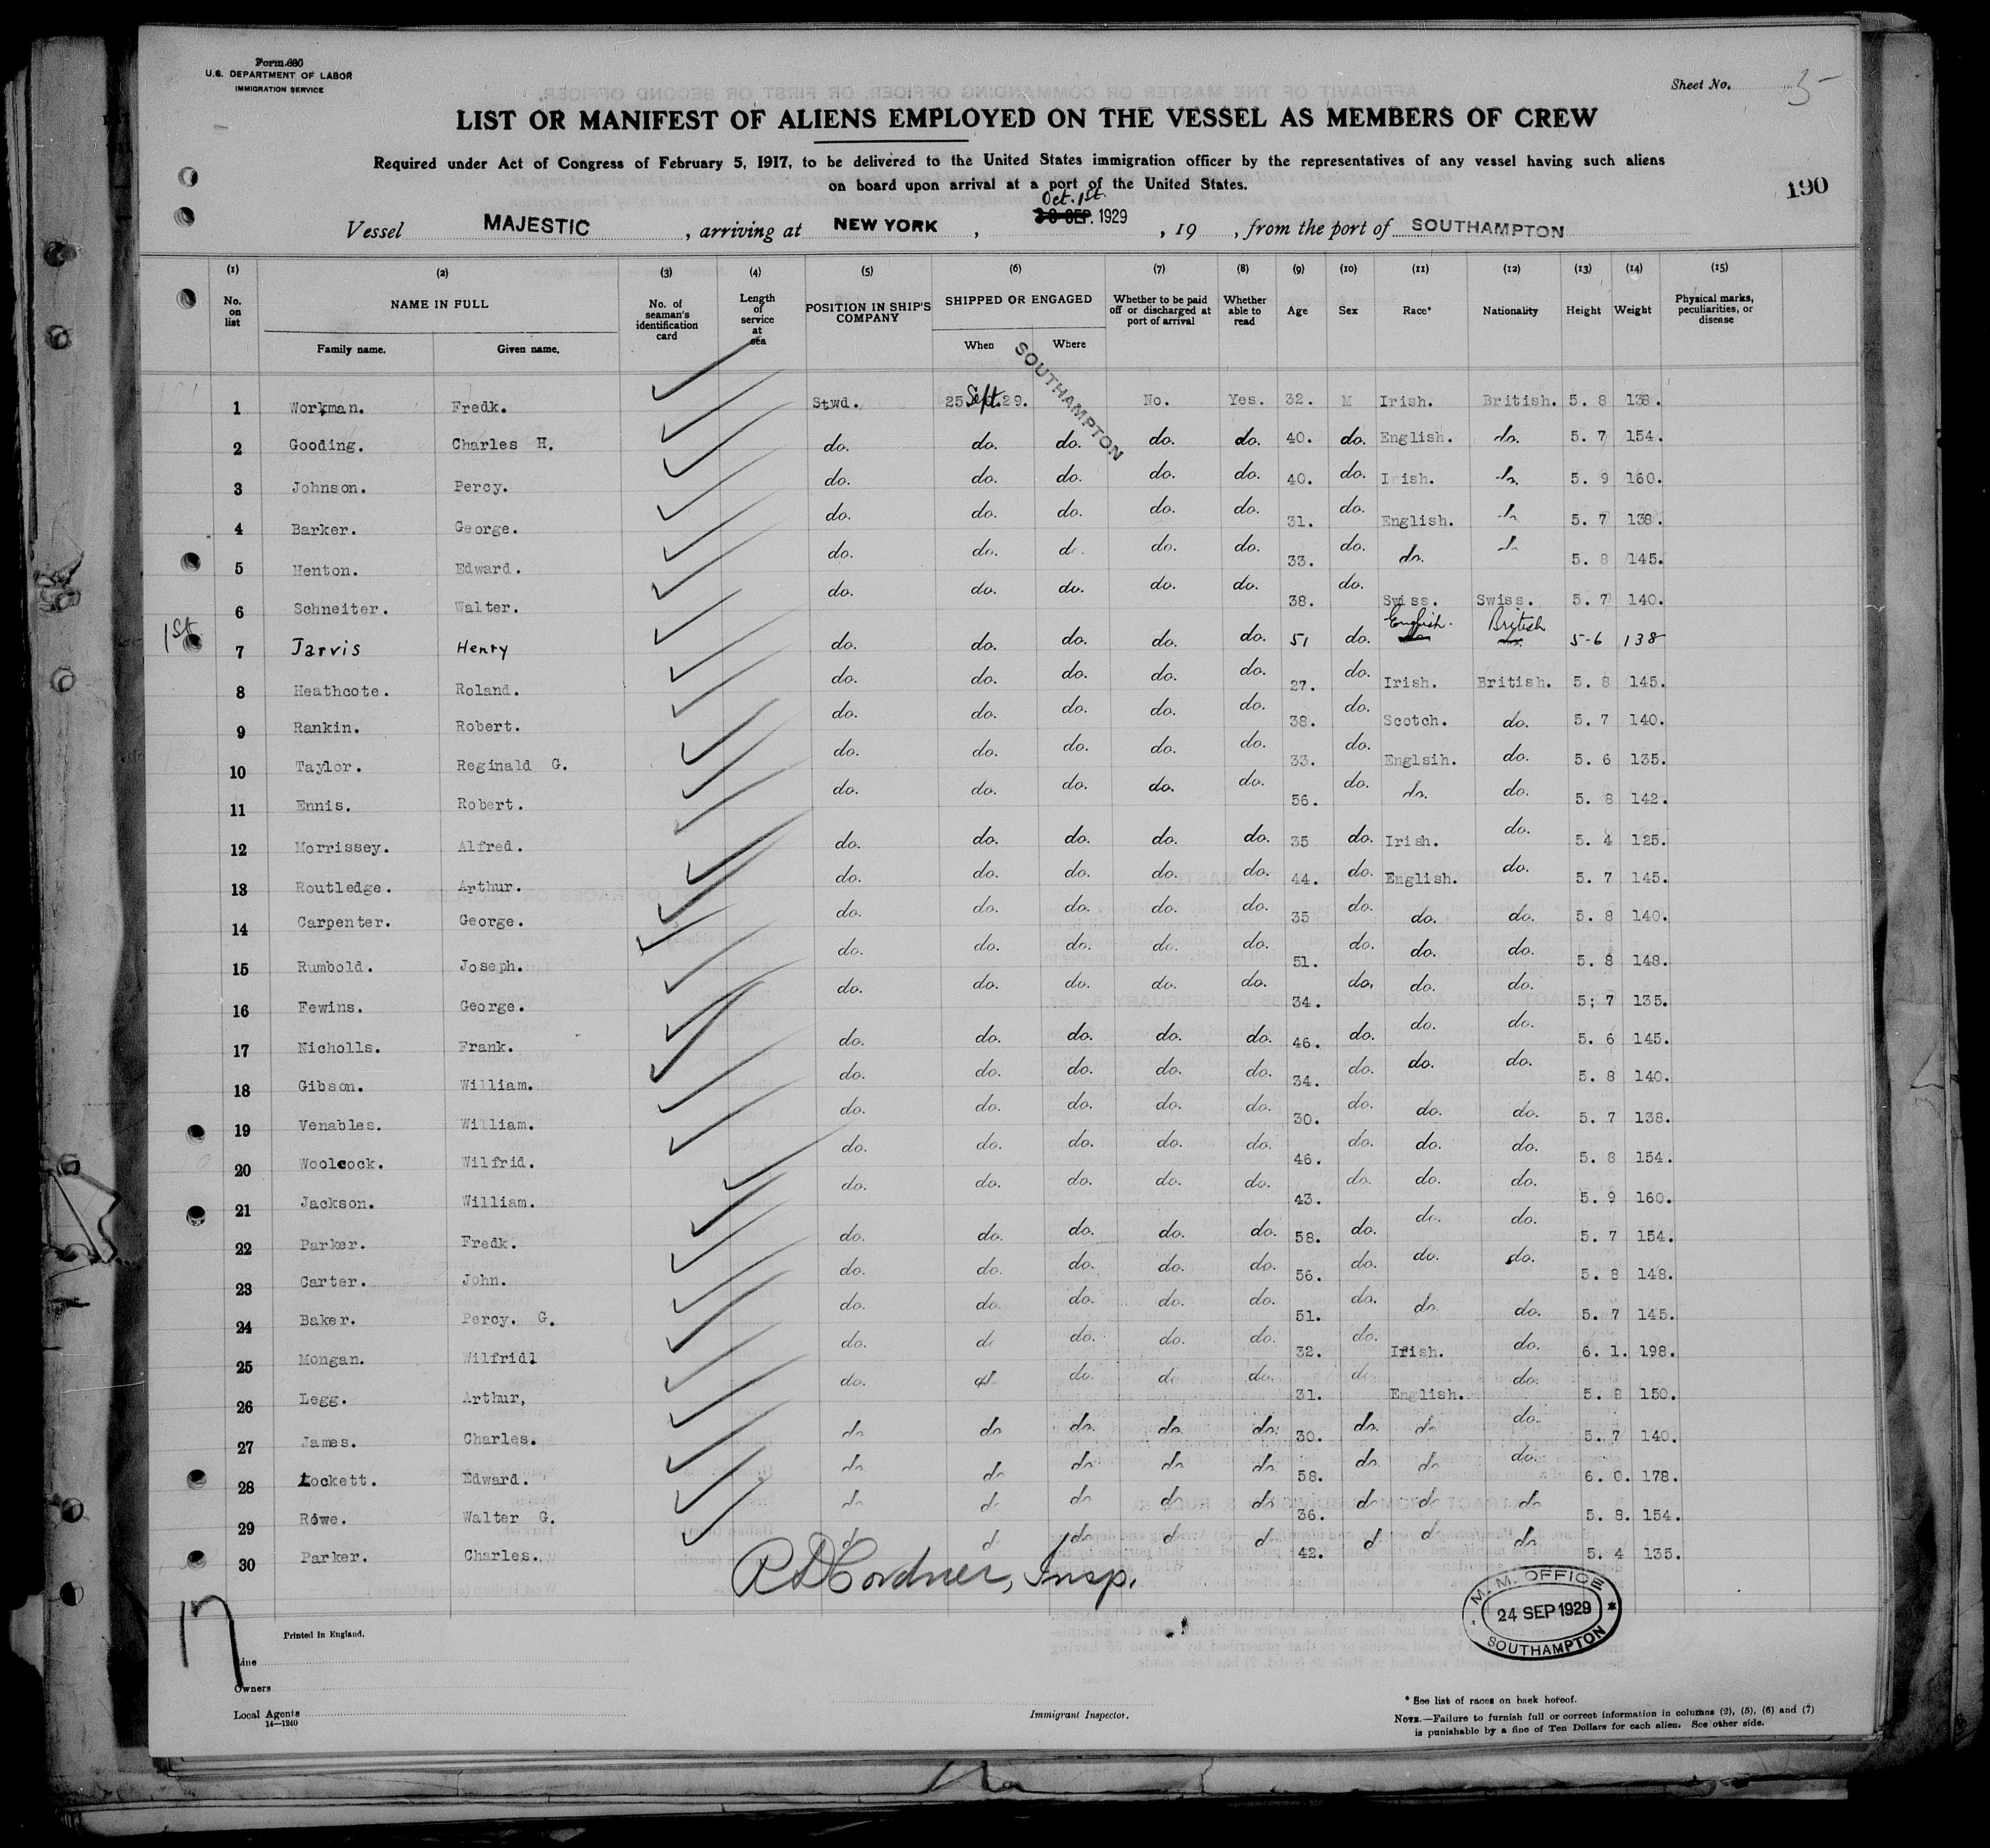 Form 680
U.S. DEPARTMENT OF LABOR
IMMIGRATION SERVICE
Sheet No. 5
LIST OR MANIFEST OF ALIENS EMPLOYED ON THE VESSEL AS MEMBERS OF CREW
Required under Act of Congress of February 5, 1917, to be delivered to the United States immigration officer by the representatives of any vessel having such aliens
on board upon arrival at a port of the United States.
190
Oct. 1st.
Vessel MAJESTIC, arriving at NEW YORK, 30 SEP. 1929, 19 , from the port of SOUTHAMPTON
(1) (2) (3) (4) (5) (6) (7) (8) (9) (10) (11) (12) (13) (14) (15)
No. on list NAME IN FULL Family name. Given name. No. of seaman's identification card Length of service at sea POSITION IN SHIP'S COMPANY SHIPPED OR ENGAGED When Where Whether to be paid off or discharged at port of arrival Whether able to read Age Sex Race* Nationality Height Weight Physical marks, peculiarities, or disease
SOUTHAMPTON
1 Workman. Fredk. Stwd. 25 Sept. 29. No. Yes. 32. M Irish. British. 5. 8 138.
2 Gooding. Charles H. do. do. do. do. do. 40. do. English. do. 5. 7 154.
3 Johnson. Percy. do. do. do. do. do. 40. do. Irish. do. 5. 9 160.
4 Barker. George. do. do. do. do. do. 31. do. English. do. 5. 7 138.
5 Henton. Edward. do. do. do. do. do. 33. do. do. do. 5. 8 145.
6 Schneiter. Walter. do. do. do. do. do. 38. do. Swiss. Swiss. 5. 7 140.
English. British
1st 7 Jarvis Henry do. do. do. do. do. 51 do. do. do. 5-6 138
8 Heathcote. Roland. do. do. do. do. do. 27. do. Irish. British. 5. 8 145.
9 Rankin. Robert. do. do. do. do. do. 38. do. Scotch. do. 5. 7 140.
10 Taylor. Reginald G. do. do. do. do. do. 33. do. Englsih. do. 5. 6 135.
11 Ennis. Robert. do. do. do. do. do. 56. do. do. do. 5. 8 142.
12 Morrissey. Alfred. do. do. do. do. do. 35 do. Irish. do. 5. 4 125.
13 Routledge. Arthur. do. do. do. do. do. 44. do. English. do. 5. 7 145.
14 Carpenter. George. do. do. do. do. do. 35 do. do. do. 5. 8 140.
15 Rumbold. Joseph. do. do. do. do. do. 51. do. do. do. 5. 8 148.
16 Fewins. George. do. do. do. do. do. 34. do. do. do. 5; 7 135.
17 Nicholls. Frank. do. do. do. do. do. 46. do. do. do. 5. 6 145.
18 Gibson. William. do. do. do. do. do. 34. do. do. do. 5. 8 140.
19 Venables. William. do. do. do. do. do. 30. do. do. do. 5. 7 138.
20 Woolcock. Wilfrid. do. do. do. do. do. 46. do. do. do. 5. 8 154.
21 Jackson. William. do. do. do. do. do. 43. do. do. do. 5. 9 160.
22 Parker. Fredk. do. do. do. do. do. 58. do. do. do. 5. 7 154.
23 Carter. John. do. do. do. do. do. 56. do. do. do. 5. 8 148.
24 Baker. Percy. G. do. do. do. do. do. 51. do. do. do. 5. 7 145.
25 Mongan. Wilfridl do. do. do. do. do. 32. do. Irish. do. 6. 1. 198.
26 Legg. Arthur, do. do. do. do. do. 31. do English. do. 5. 8 150.
27 James. Charles. do do do. do. do. 30. do. do do. 5. 7 140.
28 Lockett. Edward. do do do do do 58. do do do. 6. 0. 178.
29 Rowe. Walter G. do do do do do 36. do do do 5. 8. 154.
30 Parker. Charles. d d do d d 42. d d do. 5. 4 135.
R D Cordner, Insp.
M. M. OFFICE
24 SEP 1929
SOUTHAMPTON
Printed in England.
Line
Owners
Local Agents
14—1240
Immigrant Inspector.
* See list of races on back hereof.
NOTE.—Failure to furnish full or correct information in columns (2), (5), (6) and (7)
is punishable by a fine of Ten Dollars for each alien. See other side.